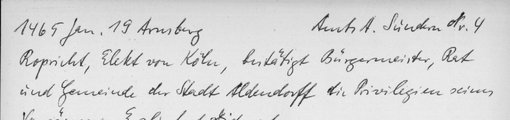 1465 Jan. 19 Arnsberg Amts A. Sundern Nr. 4
Ropricht, Elekt von Köln, bestätigt Bürgermeister, Rat
und Gemeinde der Stadt Aldendorff die Privilegien seines